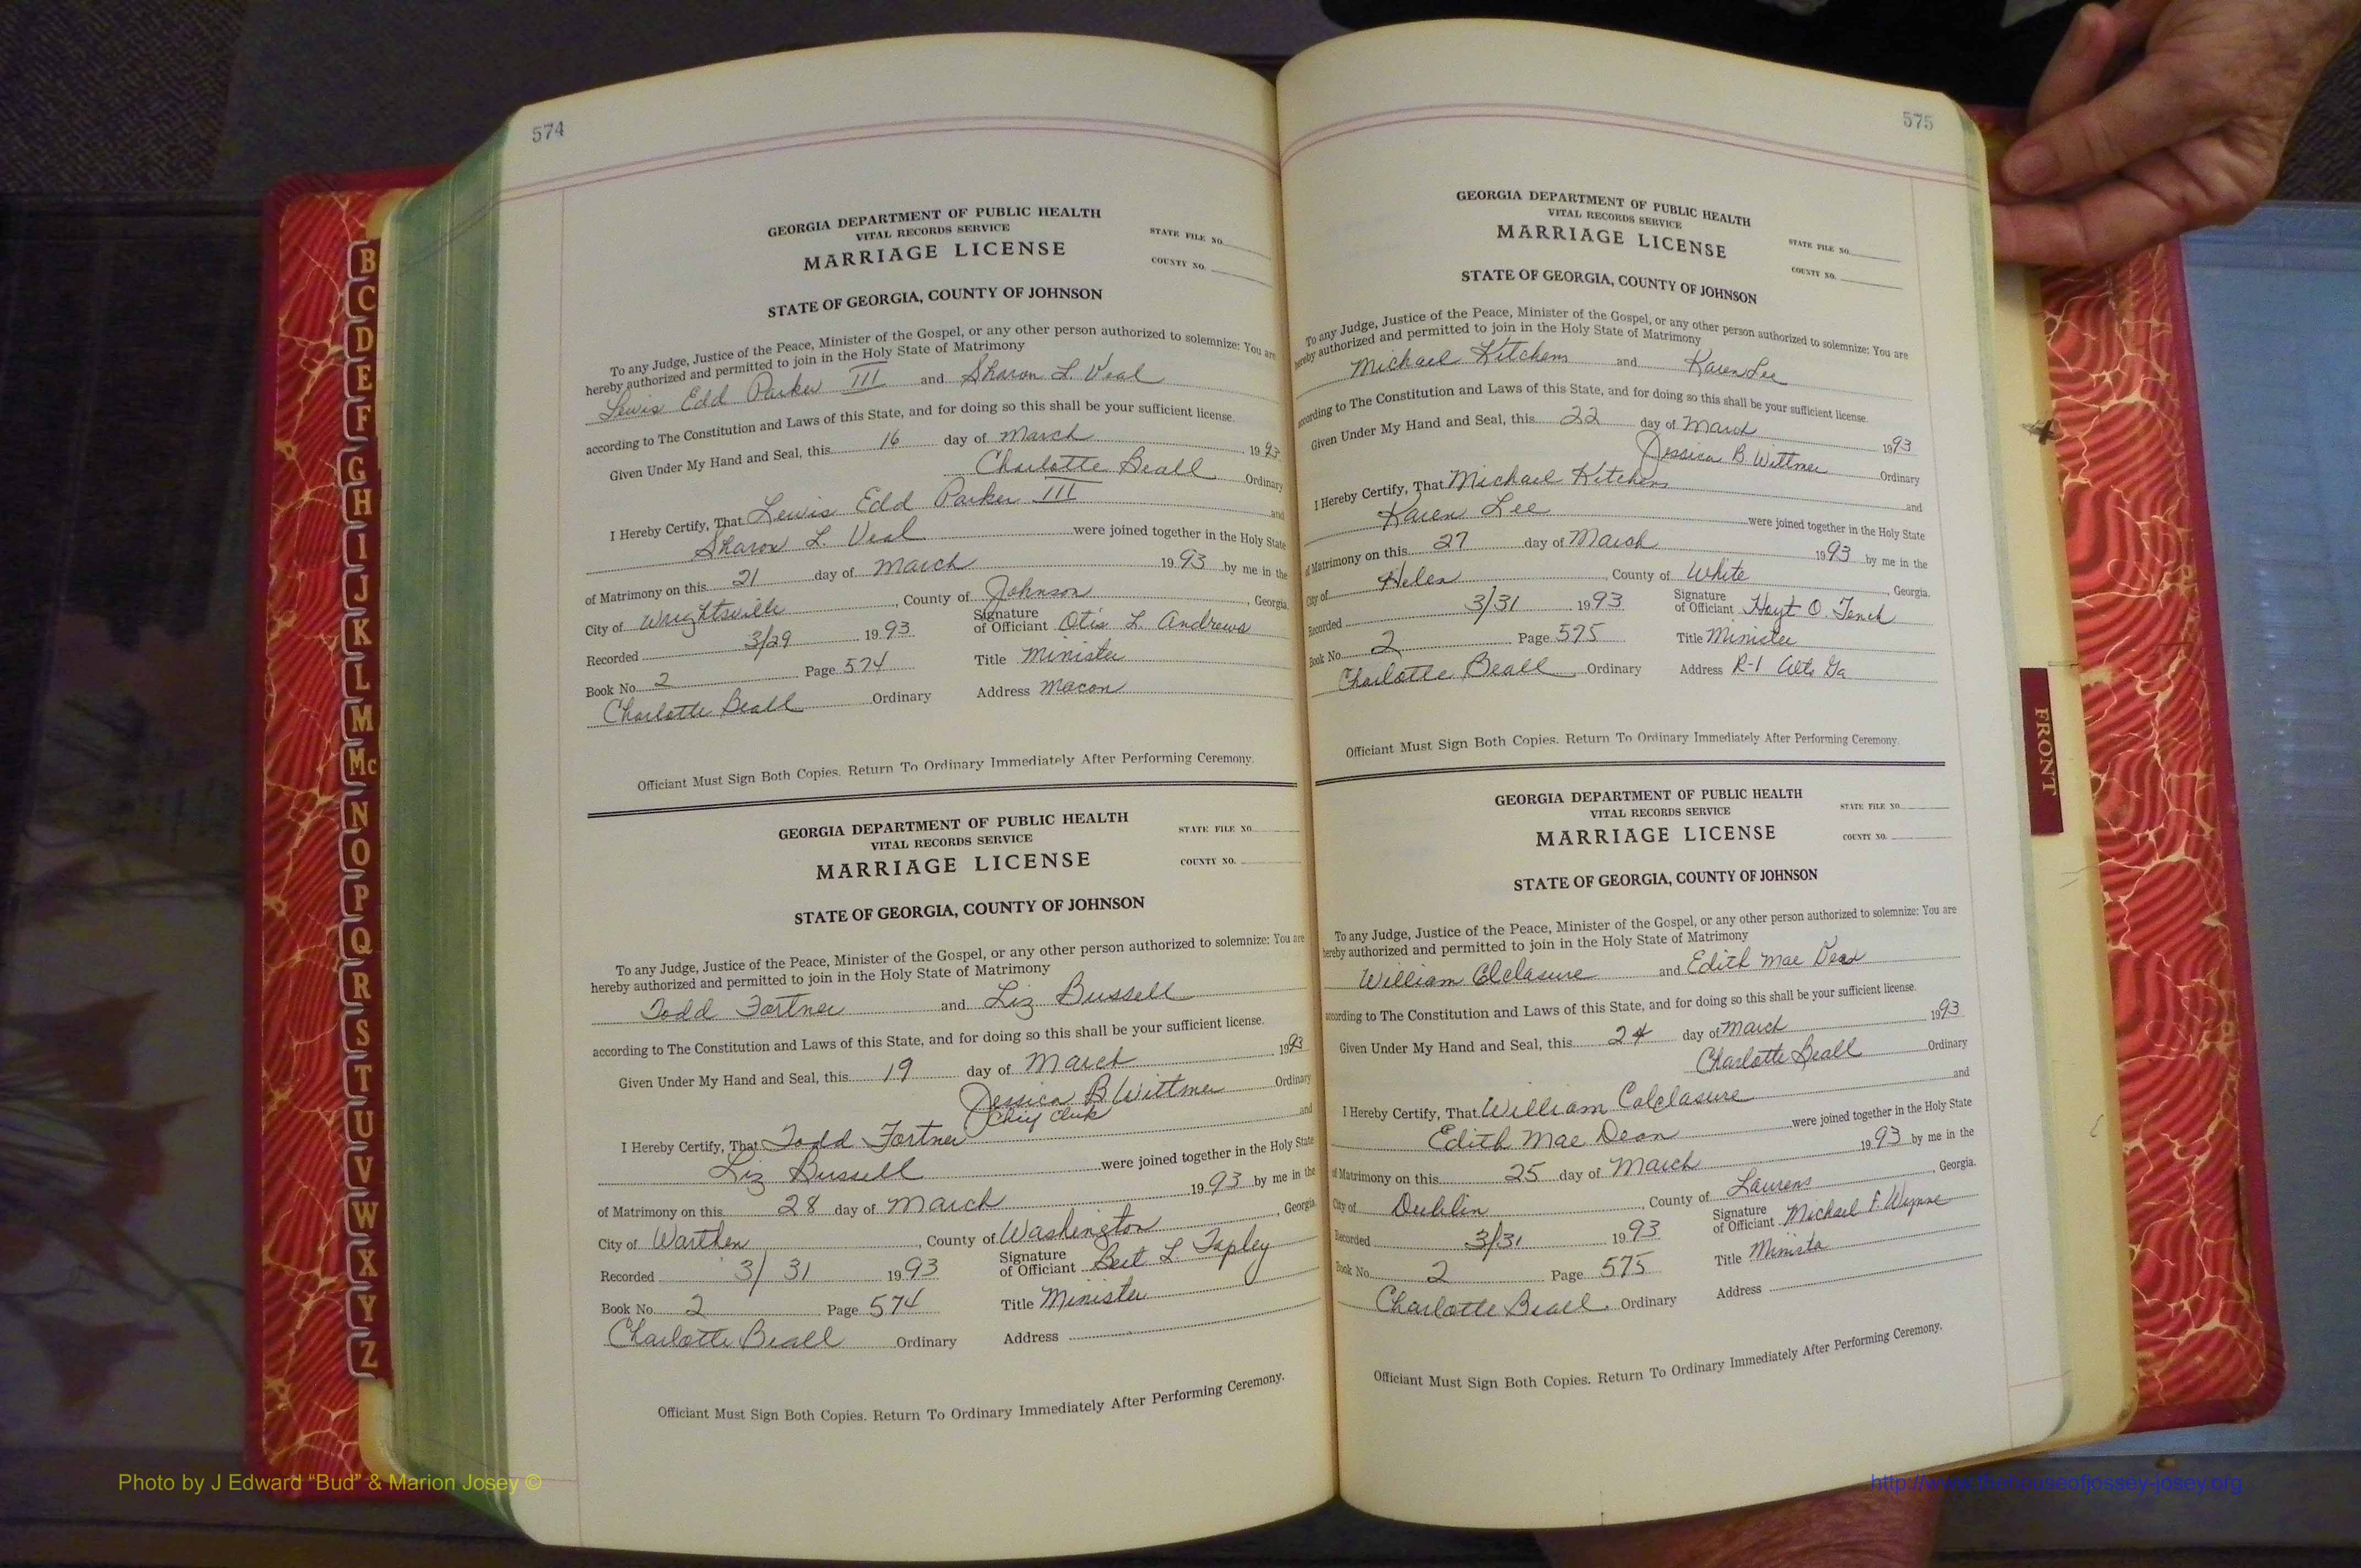 574
GEORGIA DEPARTMENT OF PUBLIC HEALTH
VITAL RECORDS SERVICE
MARRIAGE LICENSE
STATE FILE NO.
COUNTY NO.
STATE OF GEORGIA, COUNTY OF JOHNSON
To any Judge, Justice of the Peace, Minister of the Gospel, or any other person authorized to solemnize: You are
hereby authorized and permitted to join in the Holy State of Matrimony
Lewis Edd Parker III and Sharon L. Veal
according to The Constitution and Laws of this State, and for doing so this shall be your sufficient license.
Given Under My Hand and Seal, this 16 day of March 1993
Charlotte Beall Ordinary
I Hereby Certify, That Lewis Edd Parker III and
Sharon L. Veal were joined together in the Holy State
of Matrimony on this 21 day of March 1993 by me in the
City of Wrightsville, County of Johnson, Georgia.
Recorded 3/29 1993 Signature of Officiant Otis L. Andrews
Book No. 2 Page 574 Title Minister
Charlotte Beall Ordinary Address Macon
Officiant Must Sign Both Copies. Return To Ordinary Immediately After Performing Ceremony.
GEORGIA DEPARTMENT OF PUBLIC HEALTH
VITAL RECORDS SERVICE
MARRIAGE LICENSE
STATE FILE NO.
COUNTY NO.
STATE OF GEORGIA, COUNTY OF JOHNSON
To any Judge, Justice of the Peace, Minister of the Gospel, or any other person authorized to solemnize: You are
hereby authorized and permitted to join in the Holy State of Matrimony
Todd Fortner and Liz Bussell
according to The Constitution and Laws of this State, and for doing so this shall be your sufficient license.
Given Under My Hand and Seal, this 19 day of March 1993
Jessica B Wittmer Ordinary
Chief Clerk
I Hereby Certify, That Todd Fortner and
Liz Bussell were joined together in the Holy State
of Matrimony on this 28 day of March 1993 by me in the
City of Warthen, County of Washington, Georgia
Recorded 3/31 1993 Signature of Officiant Bert L. Tapley
Book No. 2 Page 574 Title Minister
Charlotte Beall Ordinary Address
Officiant Must Sign Both Copies. Return To Ordinary Immediately After Performing Ceremony.
575
GEORGIA DEPARTMENT OF PUBLIC HEALTH
VITAL RECORDS SERVICE
MARRIAGE LICENSE
STATE FILE NO.
COUNTY NO.
STATE OF GEORGIA, COUNTY OF JOHNSON
To any Judge, Justice of the Peace, Minister of the Gospel, or any other person authorized to solemnize: You are
hereby authorized and permitted to join in the Holy State of Matrimony
Michael Kitchens and Karen Lee
according to The Constitution and Laws of this State, and for doing so this shall be your sufficient license.
Given Under My Hand and Seal, this 22 day of March 1993
Jessica B Wittmer Ordinary
I Hereby Certify, That Michael Kitchens and
Karen Lee were joined together in the Holy State
of Matrimony on this 27 day of March 1993 by me in the
City of Helen, County of White, Georgia.
Recorded 3/31 1993 Signature of Officiant Hoyt O. Tench
Book No. 2 Page 575 Title Minister
Charlotte Beall Ordinary Address R-1 Alto Ga
Officiant Must Sign Both Copies. Return To Ordinary Immediately After Performing Ceremony.
GEORGIA DEPARTMENT OF PUBLIC HEALTH
VITAL RECORDS SERVICE
MARRIAGE LICENSE
STATE FILE NO.
COUNTY NO.
STATE OF GEORGIA, COUNTY OF JOHNSON
To any Judge, Justice of the Peace, Minister of the Gospel, or any other person authorized to solemnize: You are
hereby authorized and permitted to join in the Holy State of Matrimony
William Colclasure and Edith Mae Dean
according to The Constitution and Laws of this State, and for doing so this shall be your sufficient license.
Given Under My Hand and Seal, this 24 day of March 1993
Charlotte Beall Ordinary
I Hereby Certify, That William Colclasure and
Edith Mae Dean were joined together in the Holy State
of Matrimony on this 25 day of March 1993 by me in the
City of Dublin, County of Laurens, Georgia.
Recorded 3/31 1993 Signature of Officiant Michael F. Wynne
Book No. 2 Page 575 Title Minister
Charlotte Beall Ordinary Address
Officiant Must Sign Both Copies. Return To Ordinary Immediately After Performing Ceremony.
B
C
D
E
F
G
H
I
J
K
L
M
Mc
N
O
P
Q
R
S
T
U
V
W
X
Y
Z
FRONT
Photo by J Edward “Bud” & Marion Josey ©
http://www.thehouseofjossey-josey.org